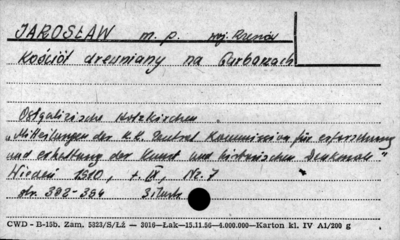 JAROSŁAW m. p. woj. Rzeszów
Kościół drewniany na Garbarzach
Ostgalizische Holzkirchen
"Mitteilungen der k.k. Zentral Kommission für erforschung
und erhaltung der Kunst und historischen Denkmale"
Wiedeń 1910, t. IX, Nr. 7
str. 393-394 3 ilustr.
CWD - B-15b. Zam. 5323/S/Łż — 2016—Łak—15.11.56—4.000.000—Karton kl. IV A1/200 g